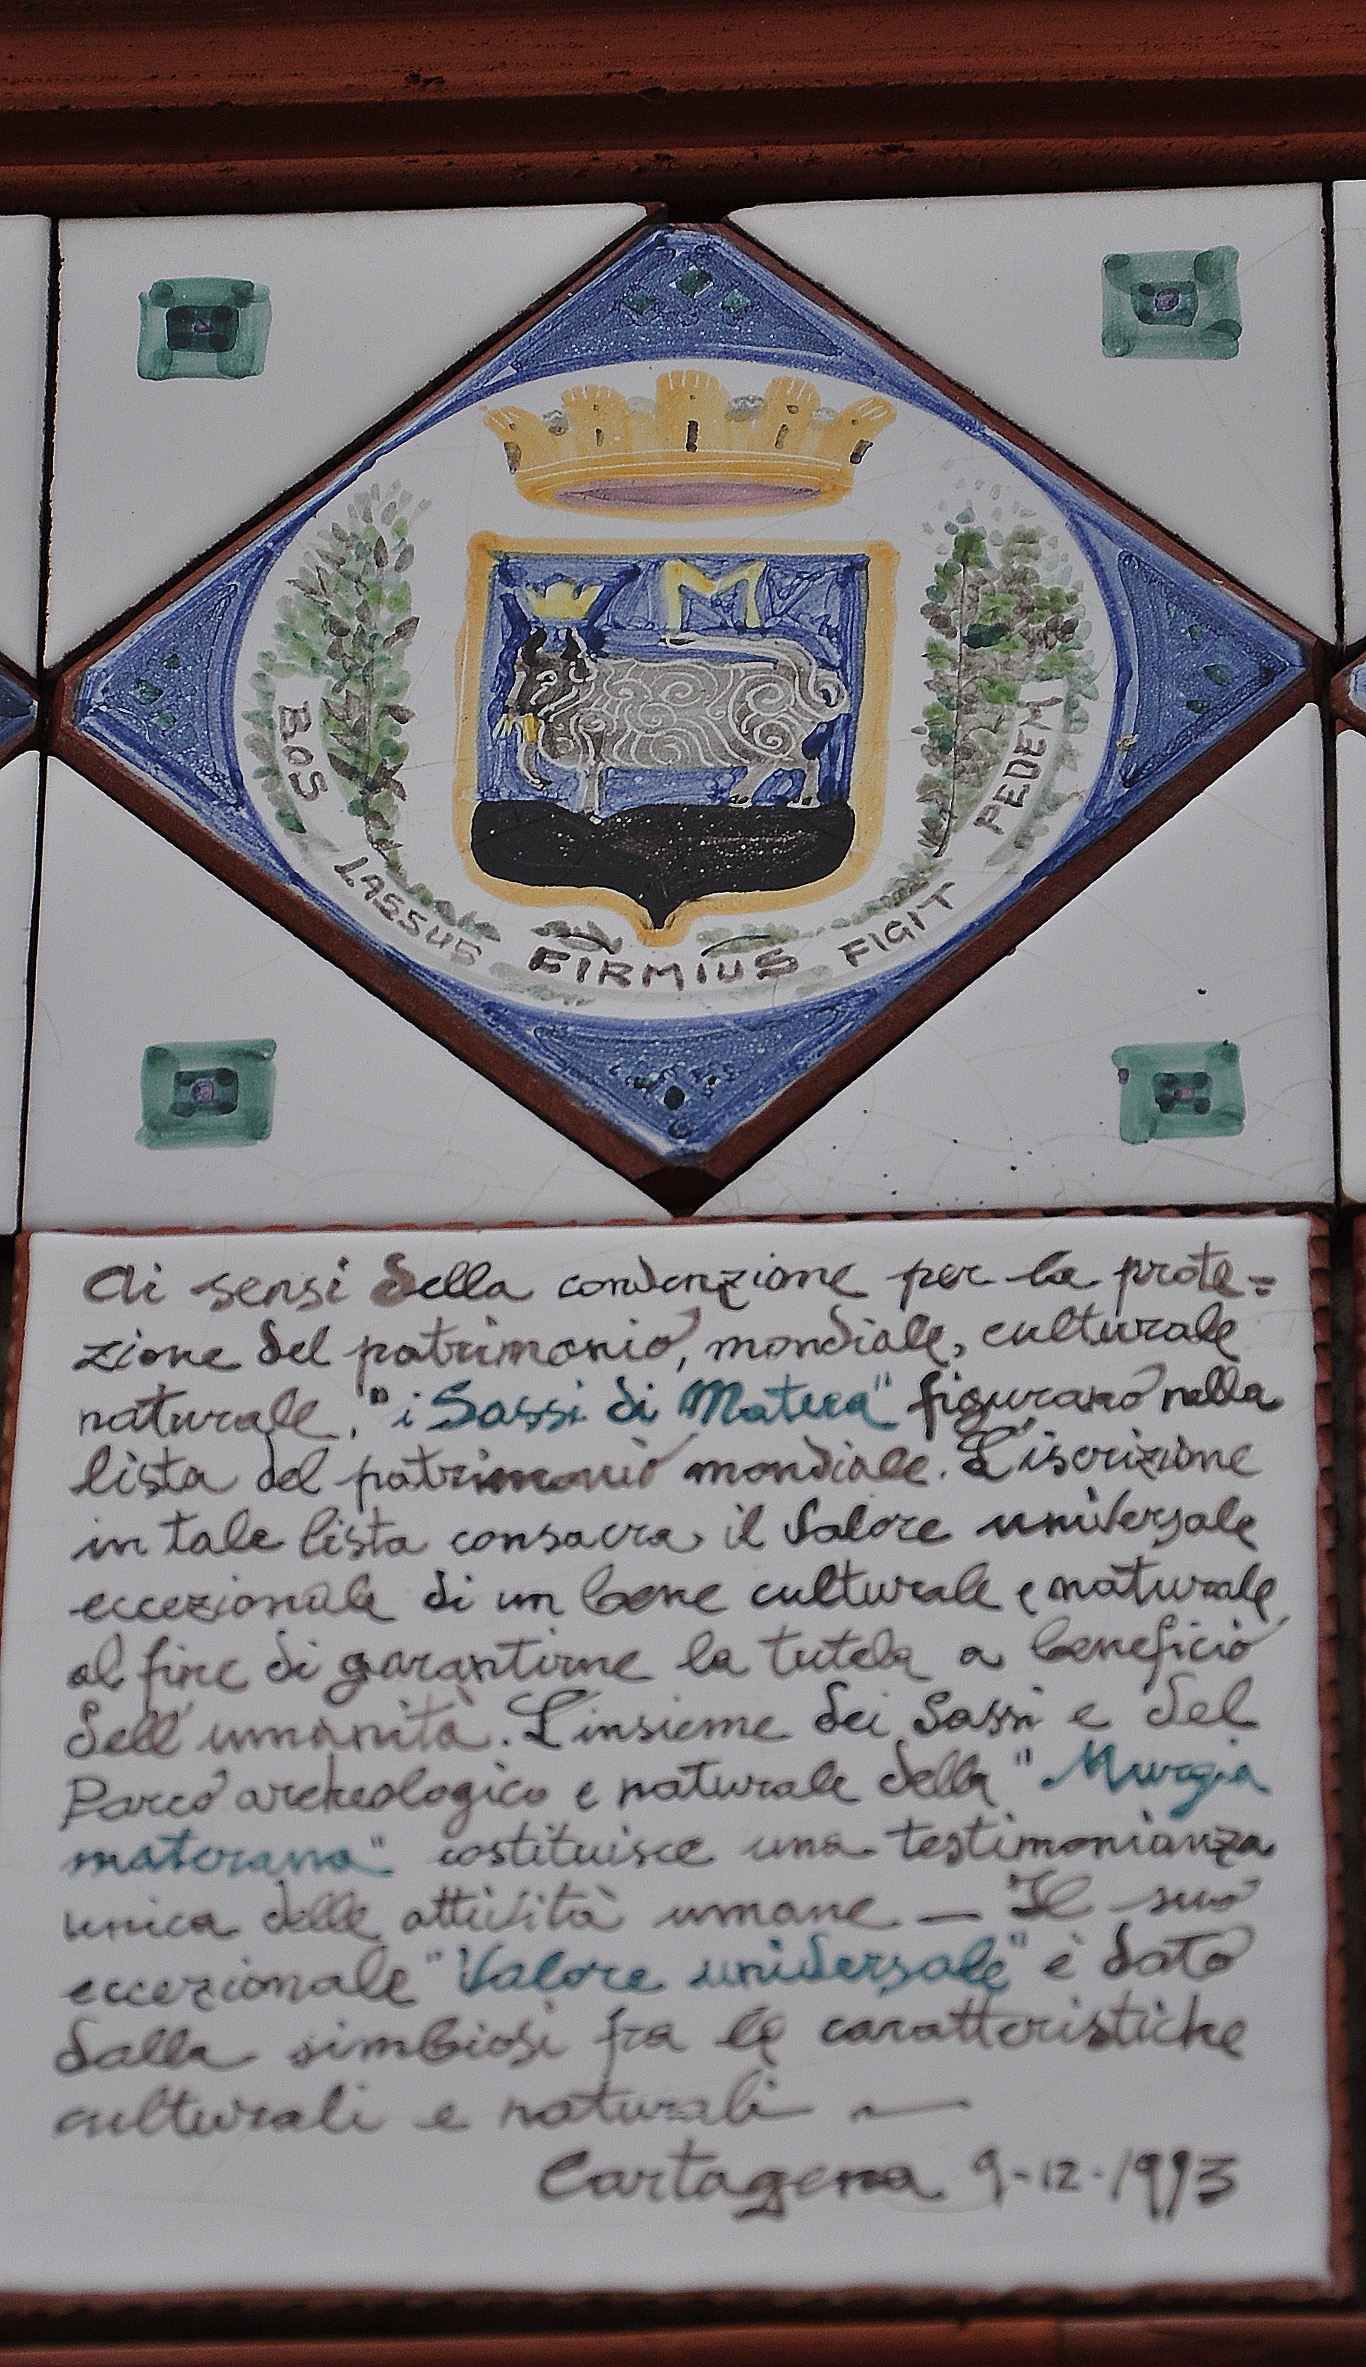 M
BOS LASSUS FIRMIUS FIGIT PEDEM
Ai sensi della convenzione per la prote=
zione del patrimonio, mondiale, culturale
naturale, "i Sassi di Matera" figurano nella
lista del patrimonio mondiale. L'iscrizione
in tale lista consacra il valore universale
eccezionale di un bene culturale e naturale
al fine di garantirne la tutela a beneficio
dell'umanità. L'insieme dei Sassi e del
Parco archeologico e naturale della "Murgia
materana" costituisce una testimonianza
unica delle attività umane — Il suo
eccezionale "Valore universale" è dato
dalla simbiosi fra le caratteristiche
culturali e naturali —
Cartagena 9-12-1993